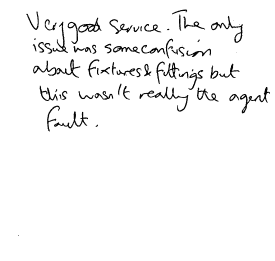 Very good service. The only
issue was some confusion
about fixtures & fittings but
this wasn't really the agent
fault.